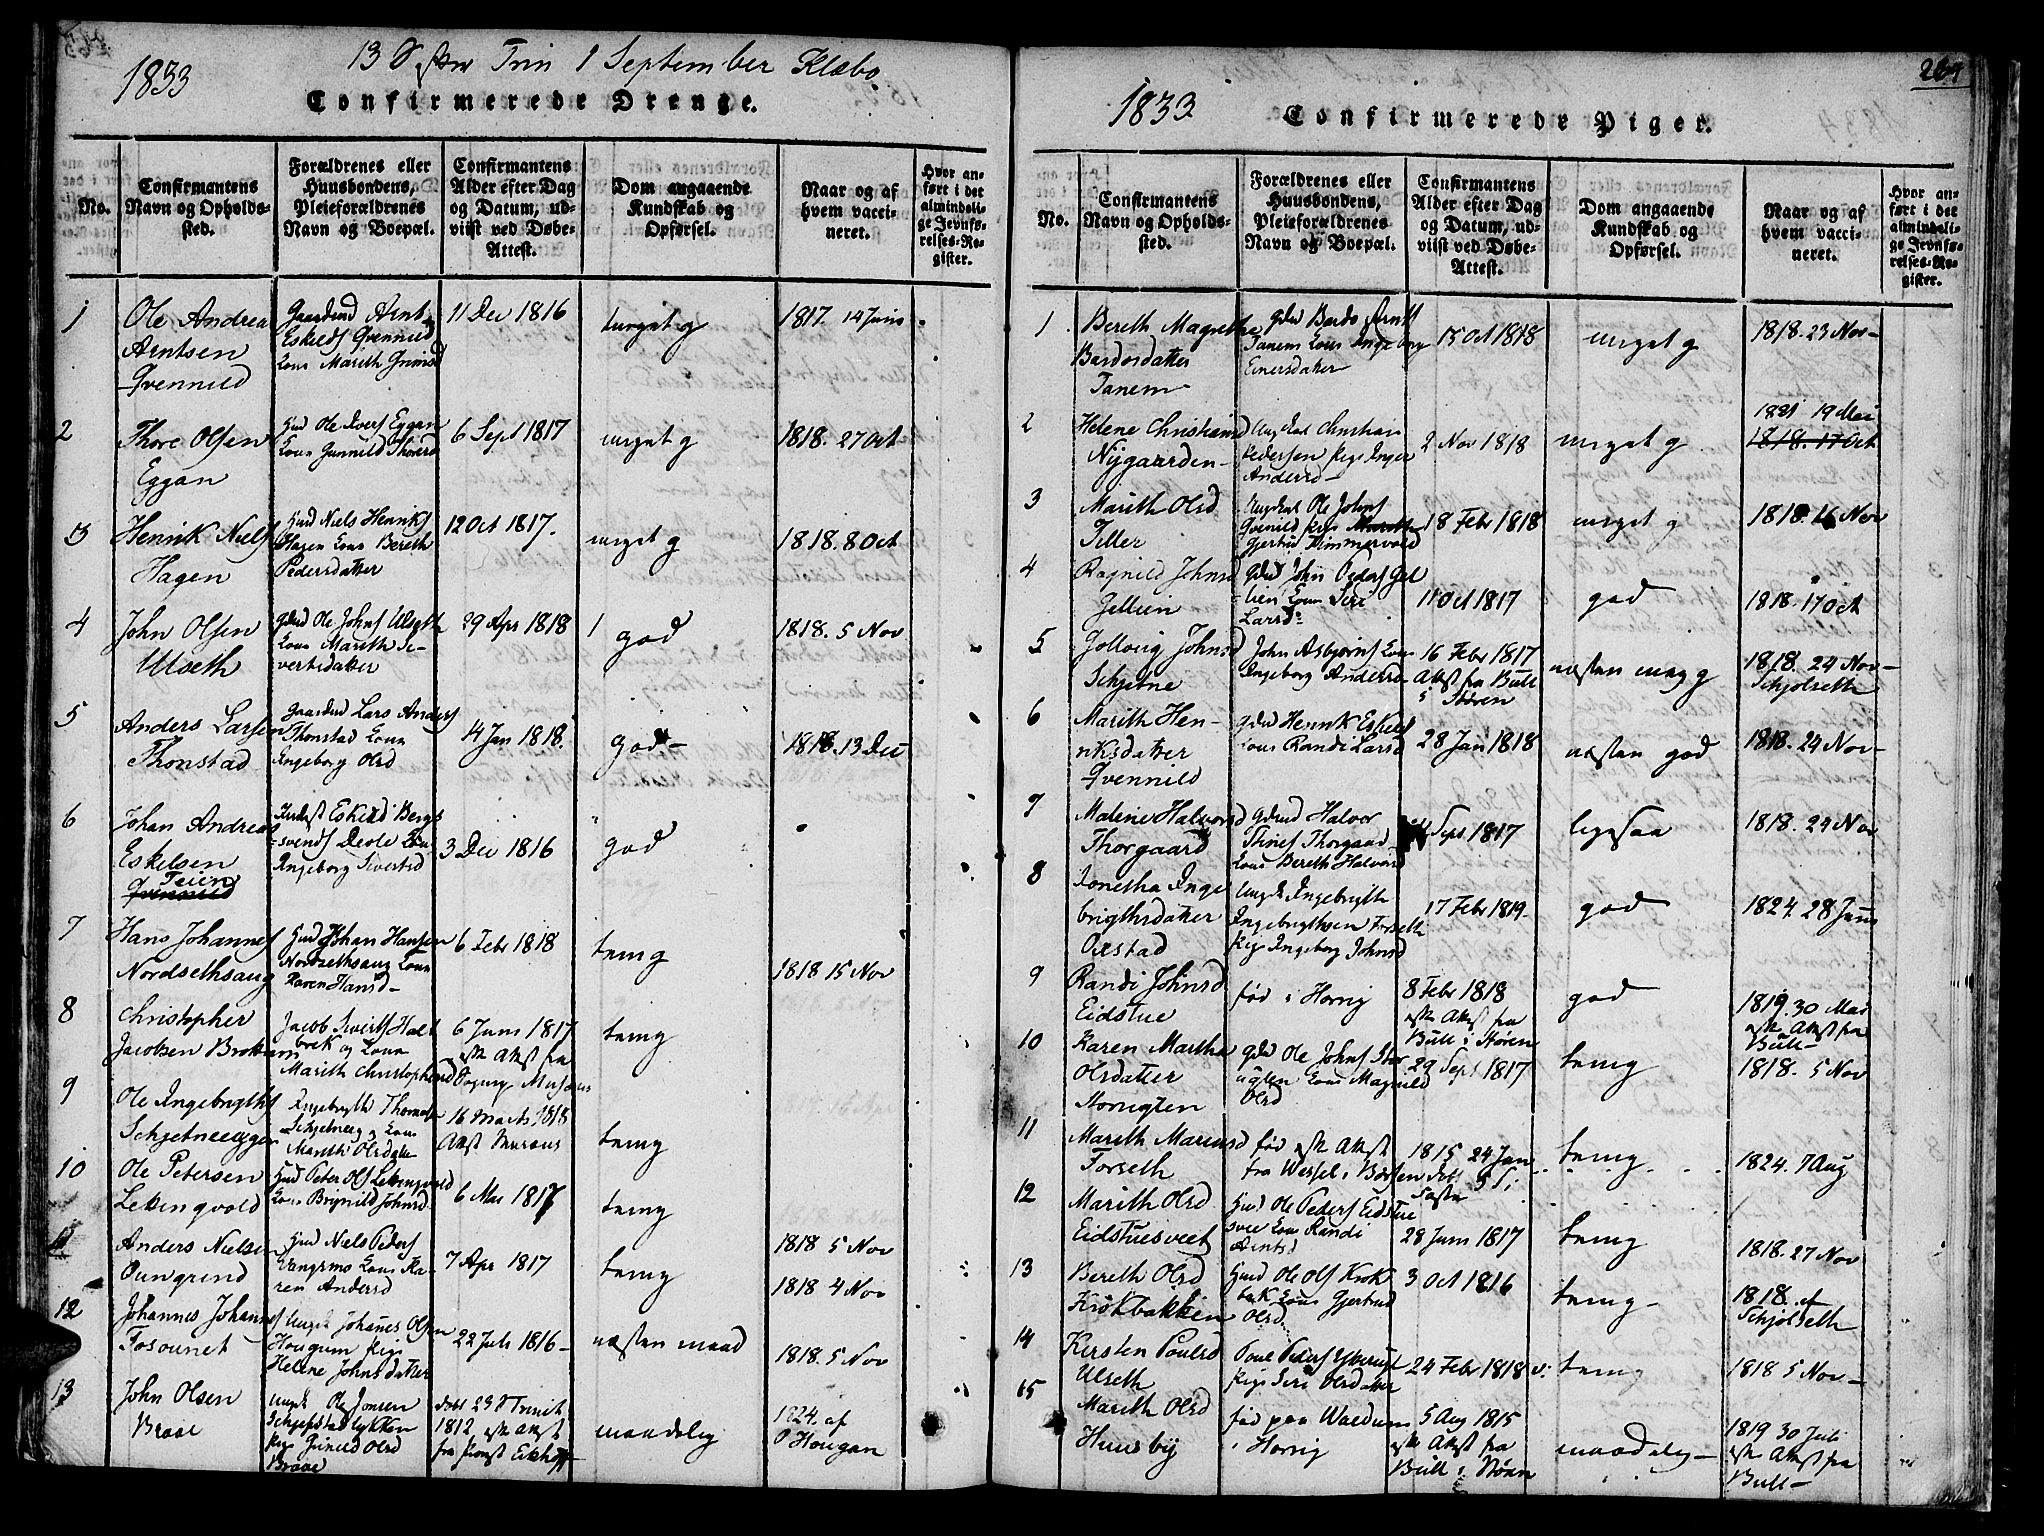 1833
13 S. efter Trin 1 September Klæbo
Confirmerede Drenge.
No.
Confirmantens Navn og Opholds-sted.
Forældrenes eller Huusbondens, Pleieforældrenes Navn og Boepæl.
Confirmantens Alder efter Dag og Datum, ud-viist ved Døbe-Attest.
Dom angaaende Kundskab og Opførsel.
Naar og af hvem vacci-neret.
Hvor an-ført i det almindeli-ge Jevnfø-relses-Re-gister.
1
Ole Andreas
Arntsen
Qvennild
Gaardmd Arnt
Eskelds Qvennild
Kone Marith Grimsd
11 Dec 1816
meget g
1817. 14 Juni
2
Thore Olsen
Eggan
Hmd Ole Ivers Eggan
Kone Gunnild Thoresd
6 Sept 1817
meget g
1818. 27 Oct
3
Henrik Niels
Hagen
Hmd Niels Henriks
Hagen Kone Bereth
Pedersdatter
12 Oct 1817.
meget g
1818. 8 Oct
4
John Olsen
Ulseth
Gdmd Ole Johns Ulseth
Kone Marith Si-
vertsdatter
29 Apr 1818
god
1818. 5 Nov
5
Anders Larsen
Thonstad
Gaardmd Lars Anders
Thonstad Kone
Ingeborg Olsd
14 Jan 1818.
god
1818. 13 Dec
6
Johan Andreas
Eskelsen
Teien
Qvennild
Eskild Bergs
Ingeborg Sivertsd
3 Dec 1816
god
7
Hans Johannes
Nordsethsaug
Hmd Johan Hansen
Nordsethsaug Kone
Karen Hansd
6 Febr 1818
temg
1818 15 Nov
8
Christopher
Jacobsen
Jacob Siverts Halt
brek og Kone
Marith Christophersd
6 Juni 1817
efter Attest fra
temg
9
Ole Ingebrigts
Schjetneeggen
Ingebrigth Thomes
Schjetneeg og Kone
Marith Olsdatter
16 Marts 1818
temg
10
Ole Petersen
Lettingvold
Hmd Peter Ols Lettingvold
Kone Brynild Johnsd
6 Mai 1817
temg
1818 5 Nov
11
Anders Nielsen
Hmd Niels Peders
Vangsmo Kone Ka-
ren Andersd
7 Apr 1817
temg
1818 4 Nov
12
Johannes Johannes
Fosounet
Ungk Johanes Olsen
Hougum Pige
Helene Johnsdatter
22 Juli 1816
næsten maad
1818. 5 Nov
13
John Olsen
Braae
Ungk Ole Jonsen
Pige Gunild Olsd
Braae
døbt 23 S Trinit
1812, efter Attest
fra
maadelig
1824. af
O Hougan
1833
264
Confirmerede Piger.
No.
Confirmantens Navn og Opholds-sted.
Forældrenes eller Huusbondens, Pleieforældrenes Navn og Boepæl.
Confirmantens Alder efter Dag og Datum, ud-viist ved Døbe-Attest.
Dom angaaende Kundskab og Opførsel.
Naar og af hvem vacci-neret.
Hvor an-ført i det almindeli-ge Jevnfø-relses-Re-gister.
1
Bereth Magrethe
Bardosdatter
Tanem
Gdmd Bardo Arnts
Tanem Kone Ingeborg
Einersdatter
15 Oct 1818
meget g
1818. 23 Nov
2
Helene Christiansd
Nygaarden
Ungkal Christian
Pedersen Pige Inger
Andersd
2 Nov 1818
meget g
1821 19 Mai
1818. 17 Oct
3
Marith Olsd
Tiller
Ungkal Ole Johns
Qvenild Pige Marith
Gjertrud Timmervold
18 Febr 1818
meget g
1818. 16 Nov
4
Ragnild Johnsd
Gellein
Gdmd John Peders Gel
lien Kone Siri
Larsd
11 Oct 1817
god
1818. 17 Oct
5
Solloug Johnsd
Schjetne
John Asbjørns Kone
Ingeborg Andersd
16 Febr 1817
Attest fra Bull
i Støren
næsten meg g
1818. 24 Nov
Schjølseth
6
Marith Hen-
riksdatter
Qvennild
Gdmd Henrik Eskels
Kone Randi Larsd
28 Jan 1818
næsten god
1818. 24 Nov
7
Malene Halvorsd
Thorgaard
Gdmd Halvor
Stines Thorgaard
Kone Bereth Halvorsd
Sept 1817
ligesaa
1818. 24 Nov
8
Jonetha Inge
brigthsdatter
Oxstad
Ungk Ingebrigth
Ingebrigthsen Forseth
Pige Ingeborg Johnsd
17 Febr 1819
god
1824. 28 Juni
9
Randi Johnsd
Eidstue
fød i Horrig
8 Febr 1818
efter Attest fra
Bull i Støren
god
1819. 30 Mai
efter Attest fra
Bull
10
Karen Martha
Olsdatter
Storugten
Gdmd Ole Johns Stor
ugten Kone Magnild
Olsd
29 Sept 1817
temg
1818. 5 Nov
11
Marith Mariusd
Forseth
fød efter Attest
fra Wessel i Børsen
1815 24 Jan
temg
1824. 7 Aug
12
Marith Olsd
Eidstuesveet
Hmd Ole Peders Eidstue
svee Kone Randi
Arntsd
28 Juni 1817
temg
1818. 27 Nov
13
Bereth Olsd
Krokbakken
Hmd Ole Ols Krok
bak Kone Gjertrud
Olsd
3 Oct 1816
temg
1818. af
Schjølseth
14
Kirsten Poulsd
Ulseth
Poul Peders
Pige Siri Olsdatter
24 Febr 1818
temg
1818 5 Nov
15
Marith Olsd
Huusby
fød paa
i Horrig
5 Aug 1815
efter Attest fra
Bull i Støren
maadelig
1819 30 Juli
efter Attest fra
Bull